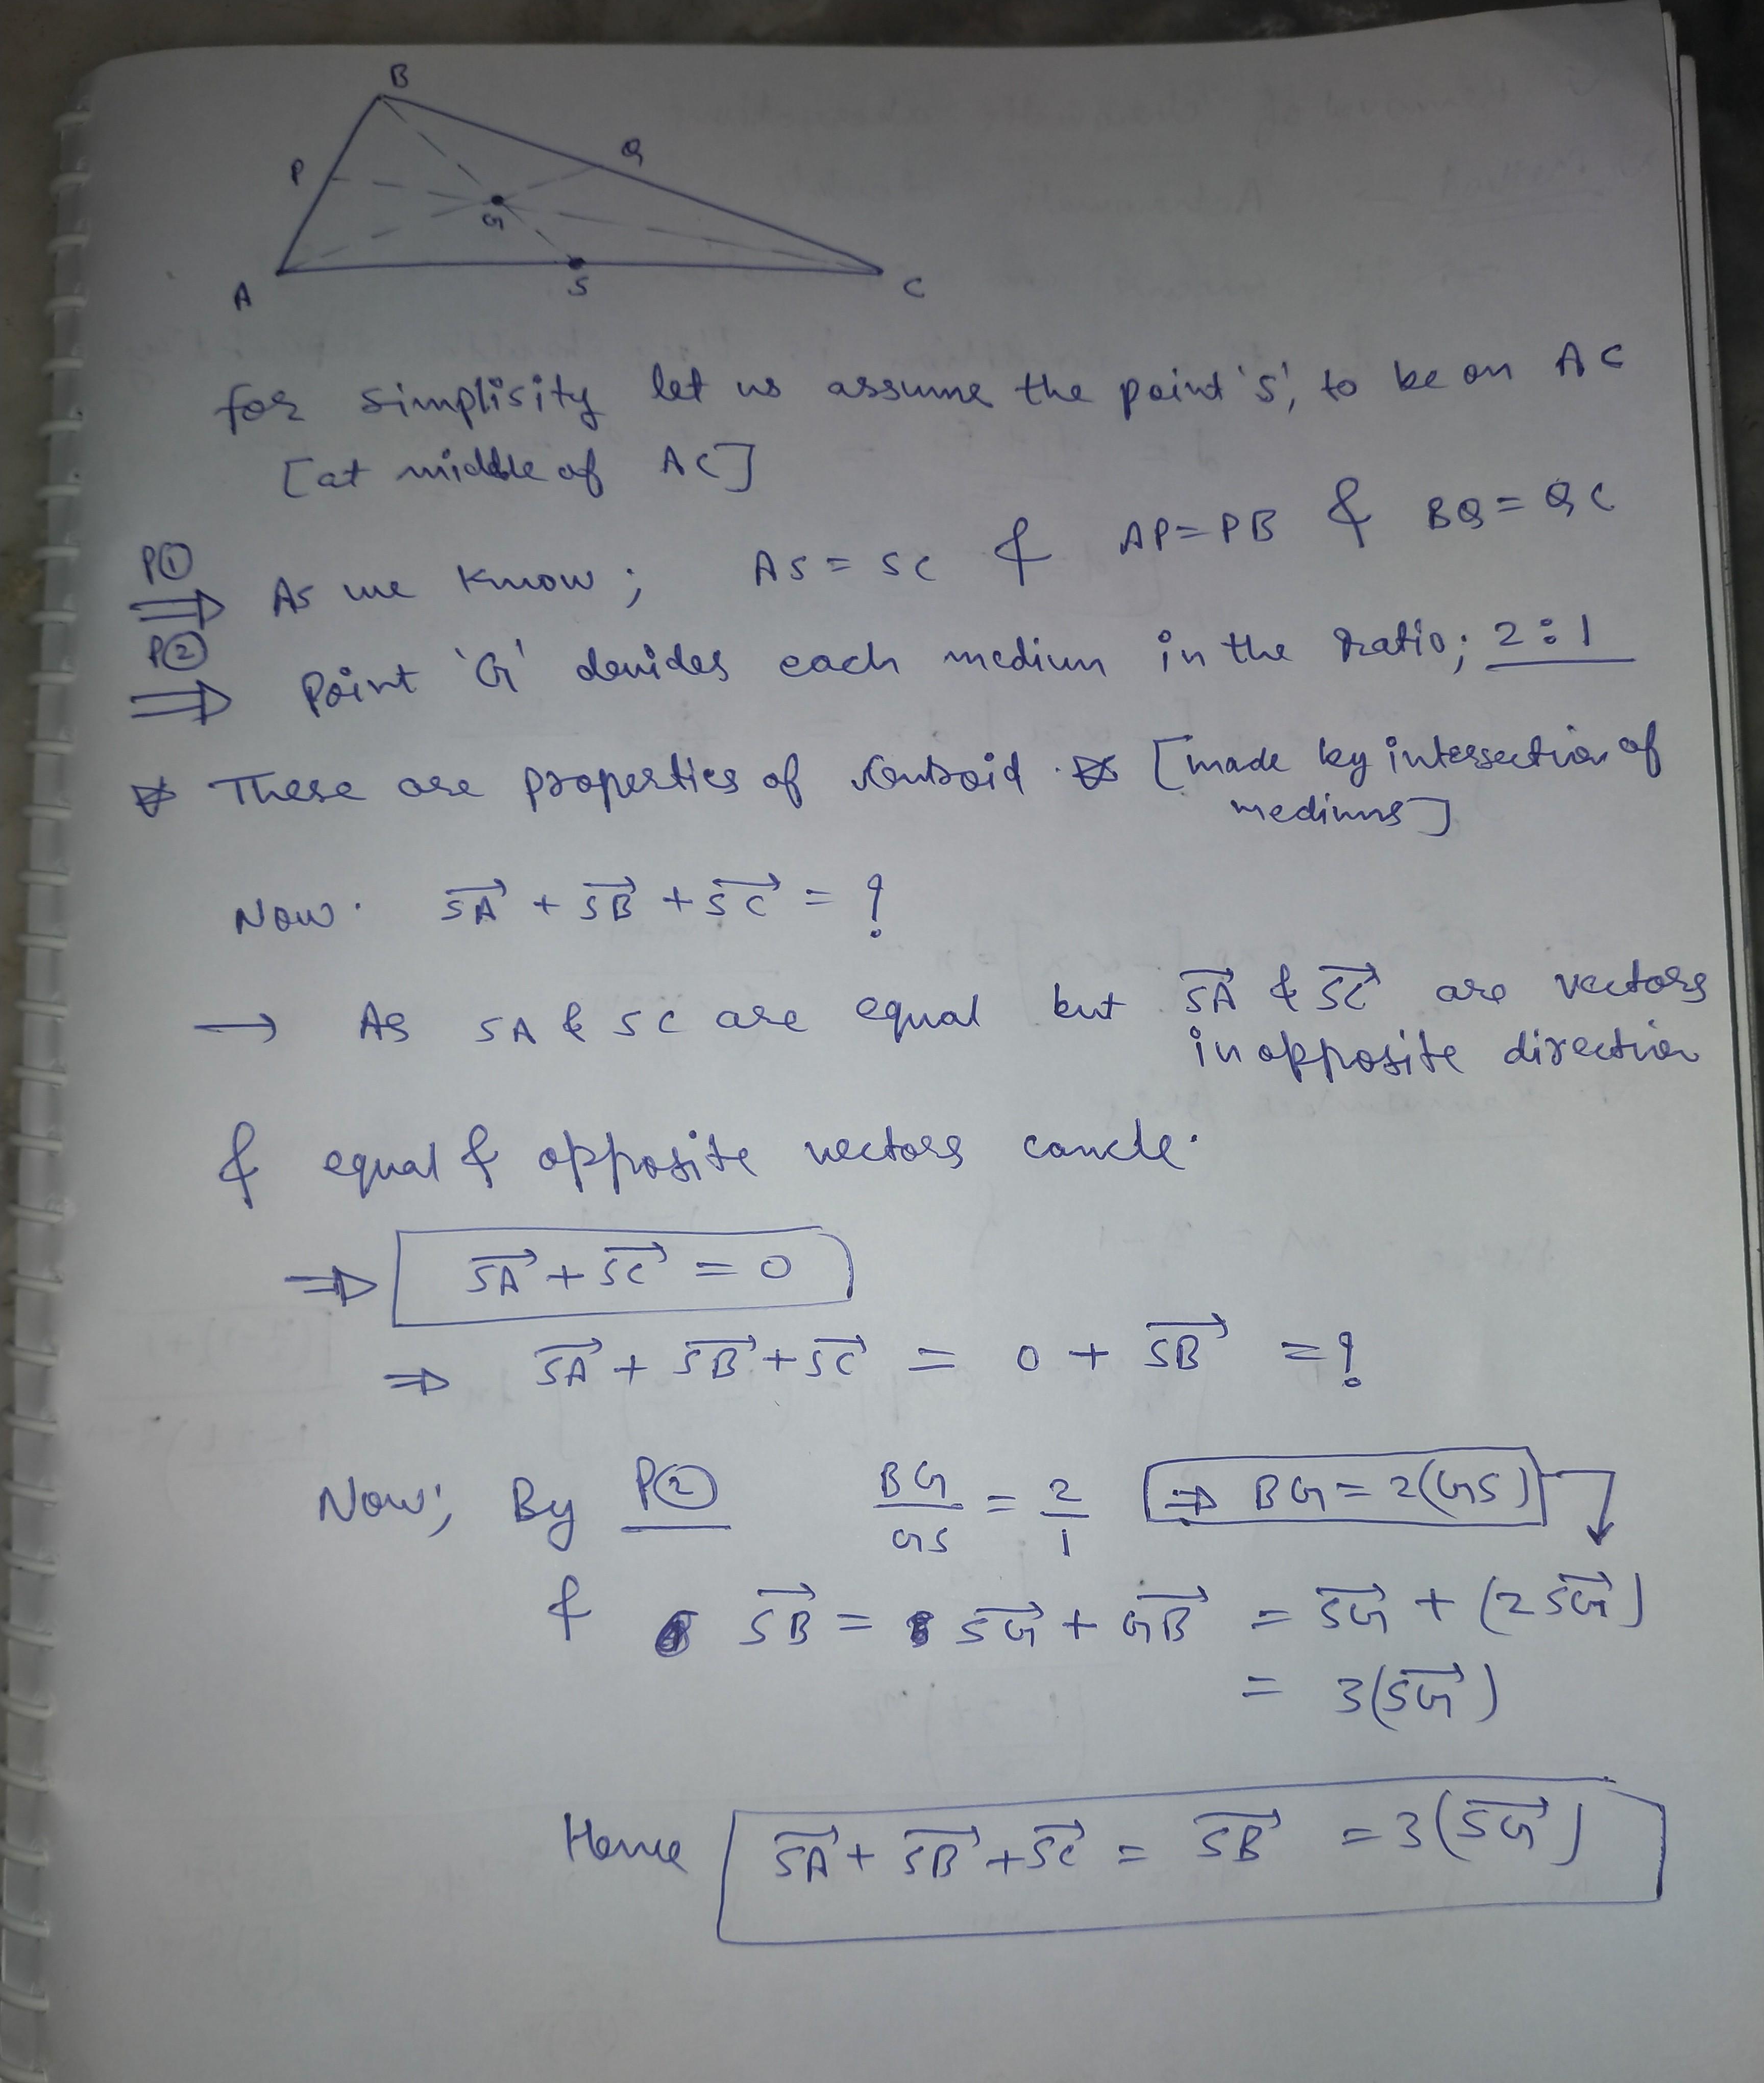 B
P
Q
G
A
S
C
for simplisity let us assume the point 'S', to be on AC
[at middle of AC]
P① ⇒ As we know; AS = SC & AP = PB & BQ = QC
P② ⇒ Point 'G' devides each medium in the ratio; 2:1
These are properties of Centroid. [made by intersection of
mediums]
Now. \vec{SA} + \vec{SB} + \vec{SC} = ?
→ As SA & SC are equal but \vec{SA} & \vec{SC} are vectors
in opposite direction
& equal & opposite vectors cancle.
⇒ \vec{SA} + \vec{SC} = 0
⇒ \vec{SA} + \vec{SB} + \vec{SC} = 0 + \vec{SB} = ?
Now; By P② BG/GS = 2/1 ⇒ BG = 2(GS)
& \vec{SB} = \vec{SG} + \vec{GB} = \vec{SG} + (2\vec{SG})
= 3(\vec{SG})
Hence \vec{SA} + \vec{SB} + \vec{SC} = \vec{SB} = 3(\vec{SG})